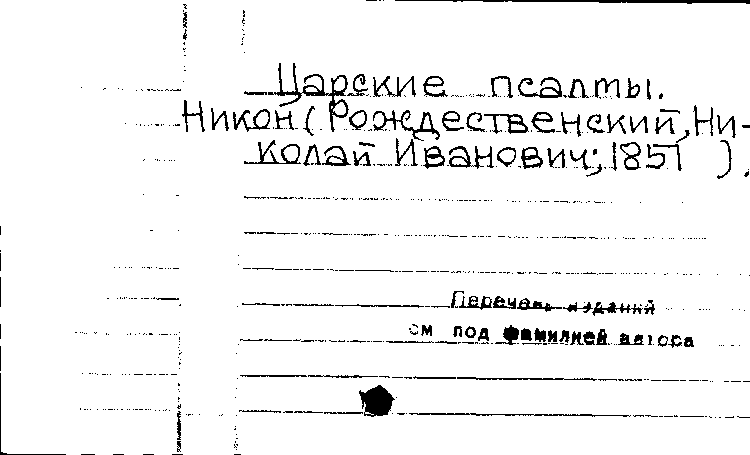 Царские псалты.
Никон (Рождественский, Ни-
колай Иванович; 1851 ).
Перечень изданий
см под фамилией автора